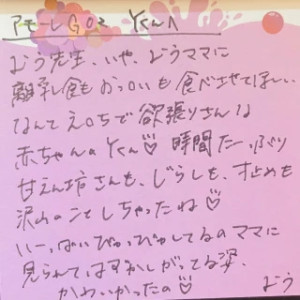 アモーレG02 Yくんへ
どう先生、いや、どうママに
離乳食もおっぱいも食べさせてほしい、
なんてえろちで欲張りさんな
赤ちゃんのYくん♡ 時間たーっぷり
甘えん坊さんも、じらしも、寸止めも
沢山のことしちゃったね♡
いーっぱいぴゅっぴゅしてるのママに
見られてはずかしがってる姿、
かわいかったの♡
どう